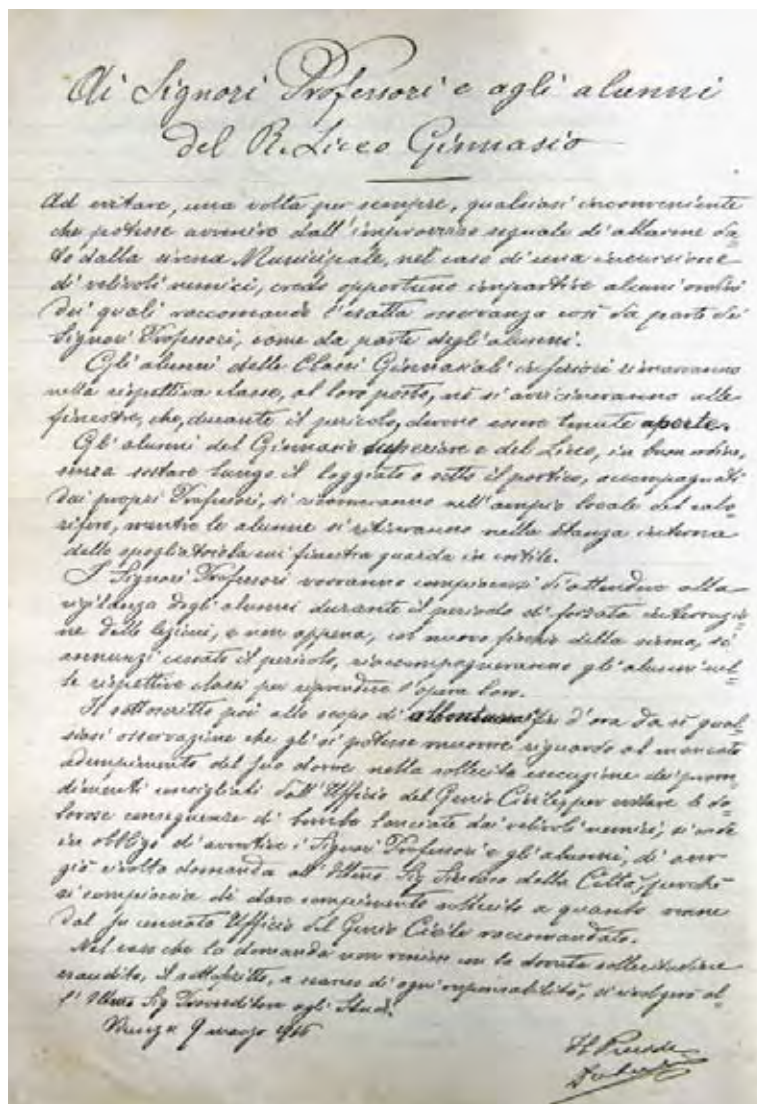 Ai Signori Professori e agli alunni
del R. Liceo Ginnasio
Ad evitare, una volta per sempre, qualsiasi inconveniente
che potesse avvenire dall'improvviso segnale di allarme da=
to dalla sirena Municipale, nel caso di una incursione
di velivoli nemici, credo opportuno impartire alcuni ordini
dei quali raccomando l'esatta osservanza così da parte dei
Signori Professori, come da parte degli alunni.
Gli alunni delle Classi Ginnasiali inferiori rimarranno
nella rispettiva classe, al loro posto, nè si avvicineranno alle
finestre, che, durante il pericolo, devono essere tenute aperte.
Gli alunni del Ginnasio superiore e del Liceo, in buon ordine,
senza sostare lungo il loggiato o sotto il portico, accompagnati
dai propri Professori, si ricovreranno nell'ampio locale del calo=
rifero, mentre le alunne si ritireranno nella stanza interna
dello spogliatoio la cui finestra guarda in cortile.
I Signori Professori vorranno compiacersi di attendere alla
vigilanza degli alunni durante il periodo di forzata interruzio=
ne delle lezioni, e non appena, un nuovo fischio della sirena, si
annunzi cessato il pericolo, riaccompagneranno gli alunni nel=
le rispettive classi per riprendere l'opera loro.
Il sottoscritto poi allo scopo di d'ora da sè qual=
siasi osservazione che gli si potesse muovere riguardo al mancato
adempimento del suo dovere nella sollecita esecuzione dei provve=
dimenti consigliati dall'Ufficio del Genio Civile per evitare le do=
lorose conseguenze di bombe lanciate dai velivoli nemici, si vede
in obbligo di avvertire i Signori Professori e gli alunni, di aver
già rivolto domanda all'Illmo Sig Sindaco della Città, perchè
si compiaccia di dare compimento sollecito a quanto venne
dal su cennato Ufficio del Genio Civile raccomandato.
Nel caso che la domanda non venisse con la dovuta sollecitudine
esaudita, il sottoscritto, a scanso di ogni responsabilità, si rivolgerà al=
l'Illmo Sig Provveditore agli Studi.
9 marzo
Il Preside